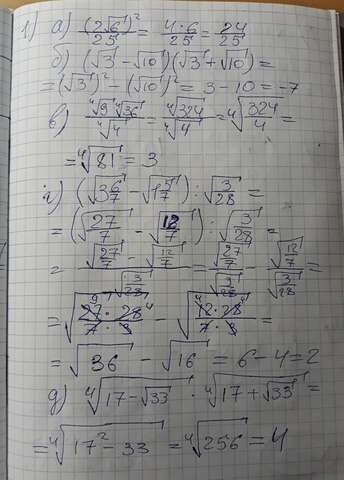 1) а) (2√6)²/25 = 4·6/25 = 24/25
б) (√3 - √10)(√3 + √10) =
= (√3)² - (√10)² = 3 - 10 = -7
в) ⁴√9 ⁴√36 / ⁴√4 = ⁴√324 / ⁴√4 = ⁴√(324/4) =
= ⁴√81 = 3
г) (√(3 6/7) - √(1 5/7)) : √(3/28) =
= (√(27/7) - √(12/7)) : √(3/28) =
= (√(27/7) - √(12/7)) / √(3/28) = √(27/7) / √(3/28) - √(12/7) / √(3/28) =
= √(27·28 / 7·3) - √(12·28 / 7·3) =
= √36 - √16 = 6 - 4 = 2
д) ⁴√(17 - √33) · ⁴√(17 + √33) =
= ⁴√(17² - 33) = ⁴√256 = 4